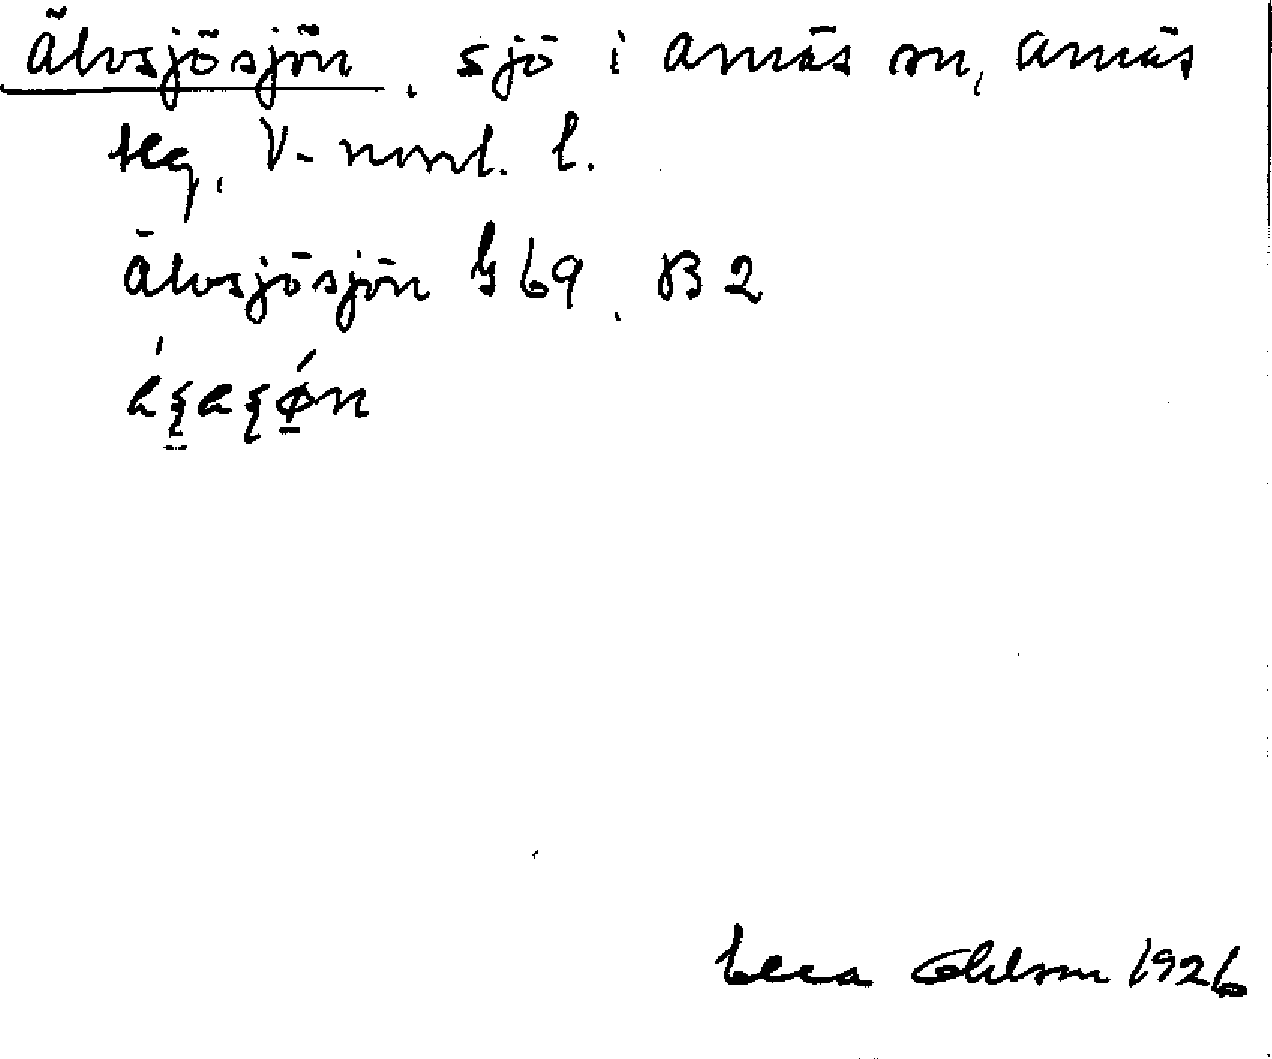 Älvsjösjön, sjö i Arnäs sn, Arnäs
tlg, V-norrl. l.
Älvsjösjön G69, B2
Ohlson 1926